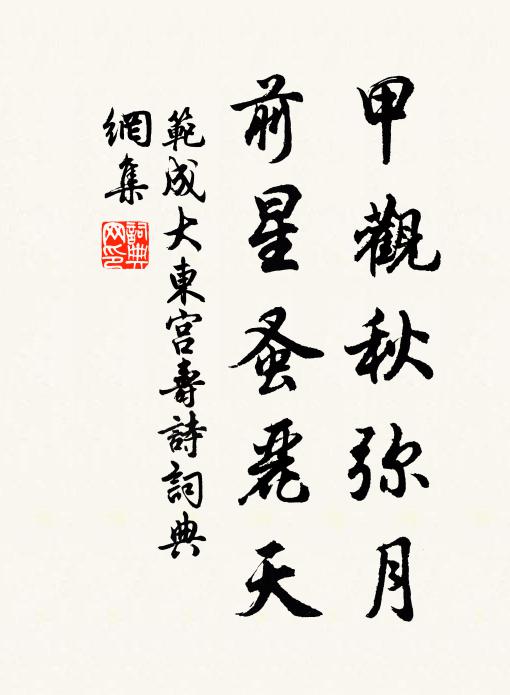 甲觀秋弥月
前星蚤麗天
範成大東宮壽詩詞典
網集
詞典
网印